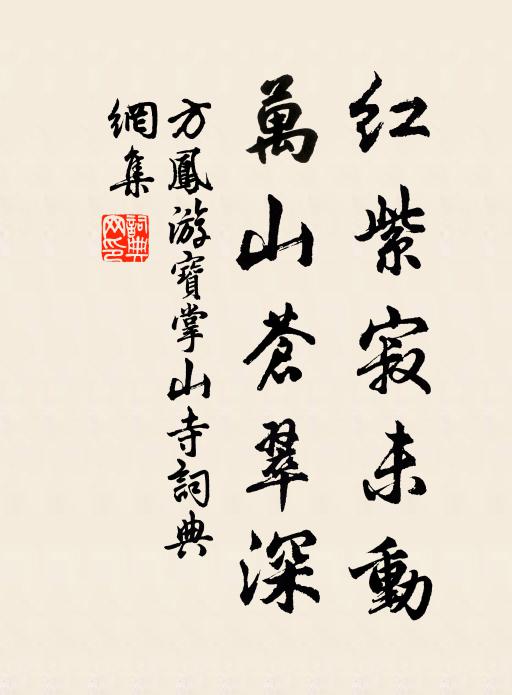 紅紫寂未動
萬山蒼翠深
方鳳游寶掌山寺詞典
網集
詞典
网印